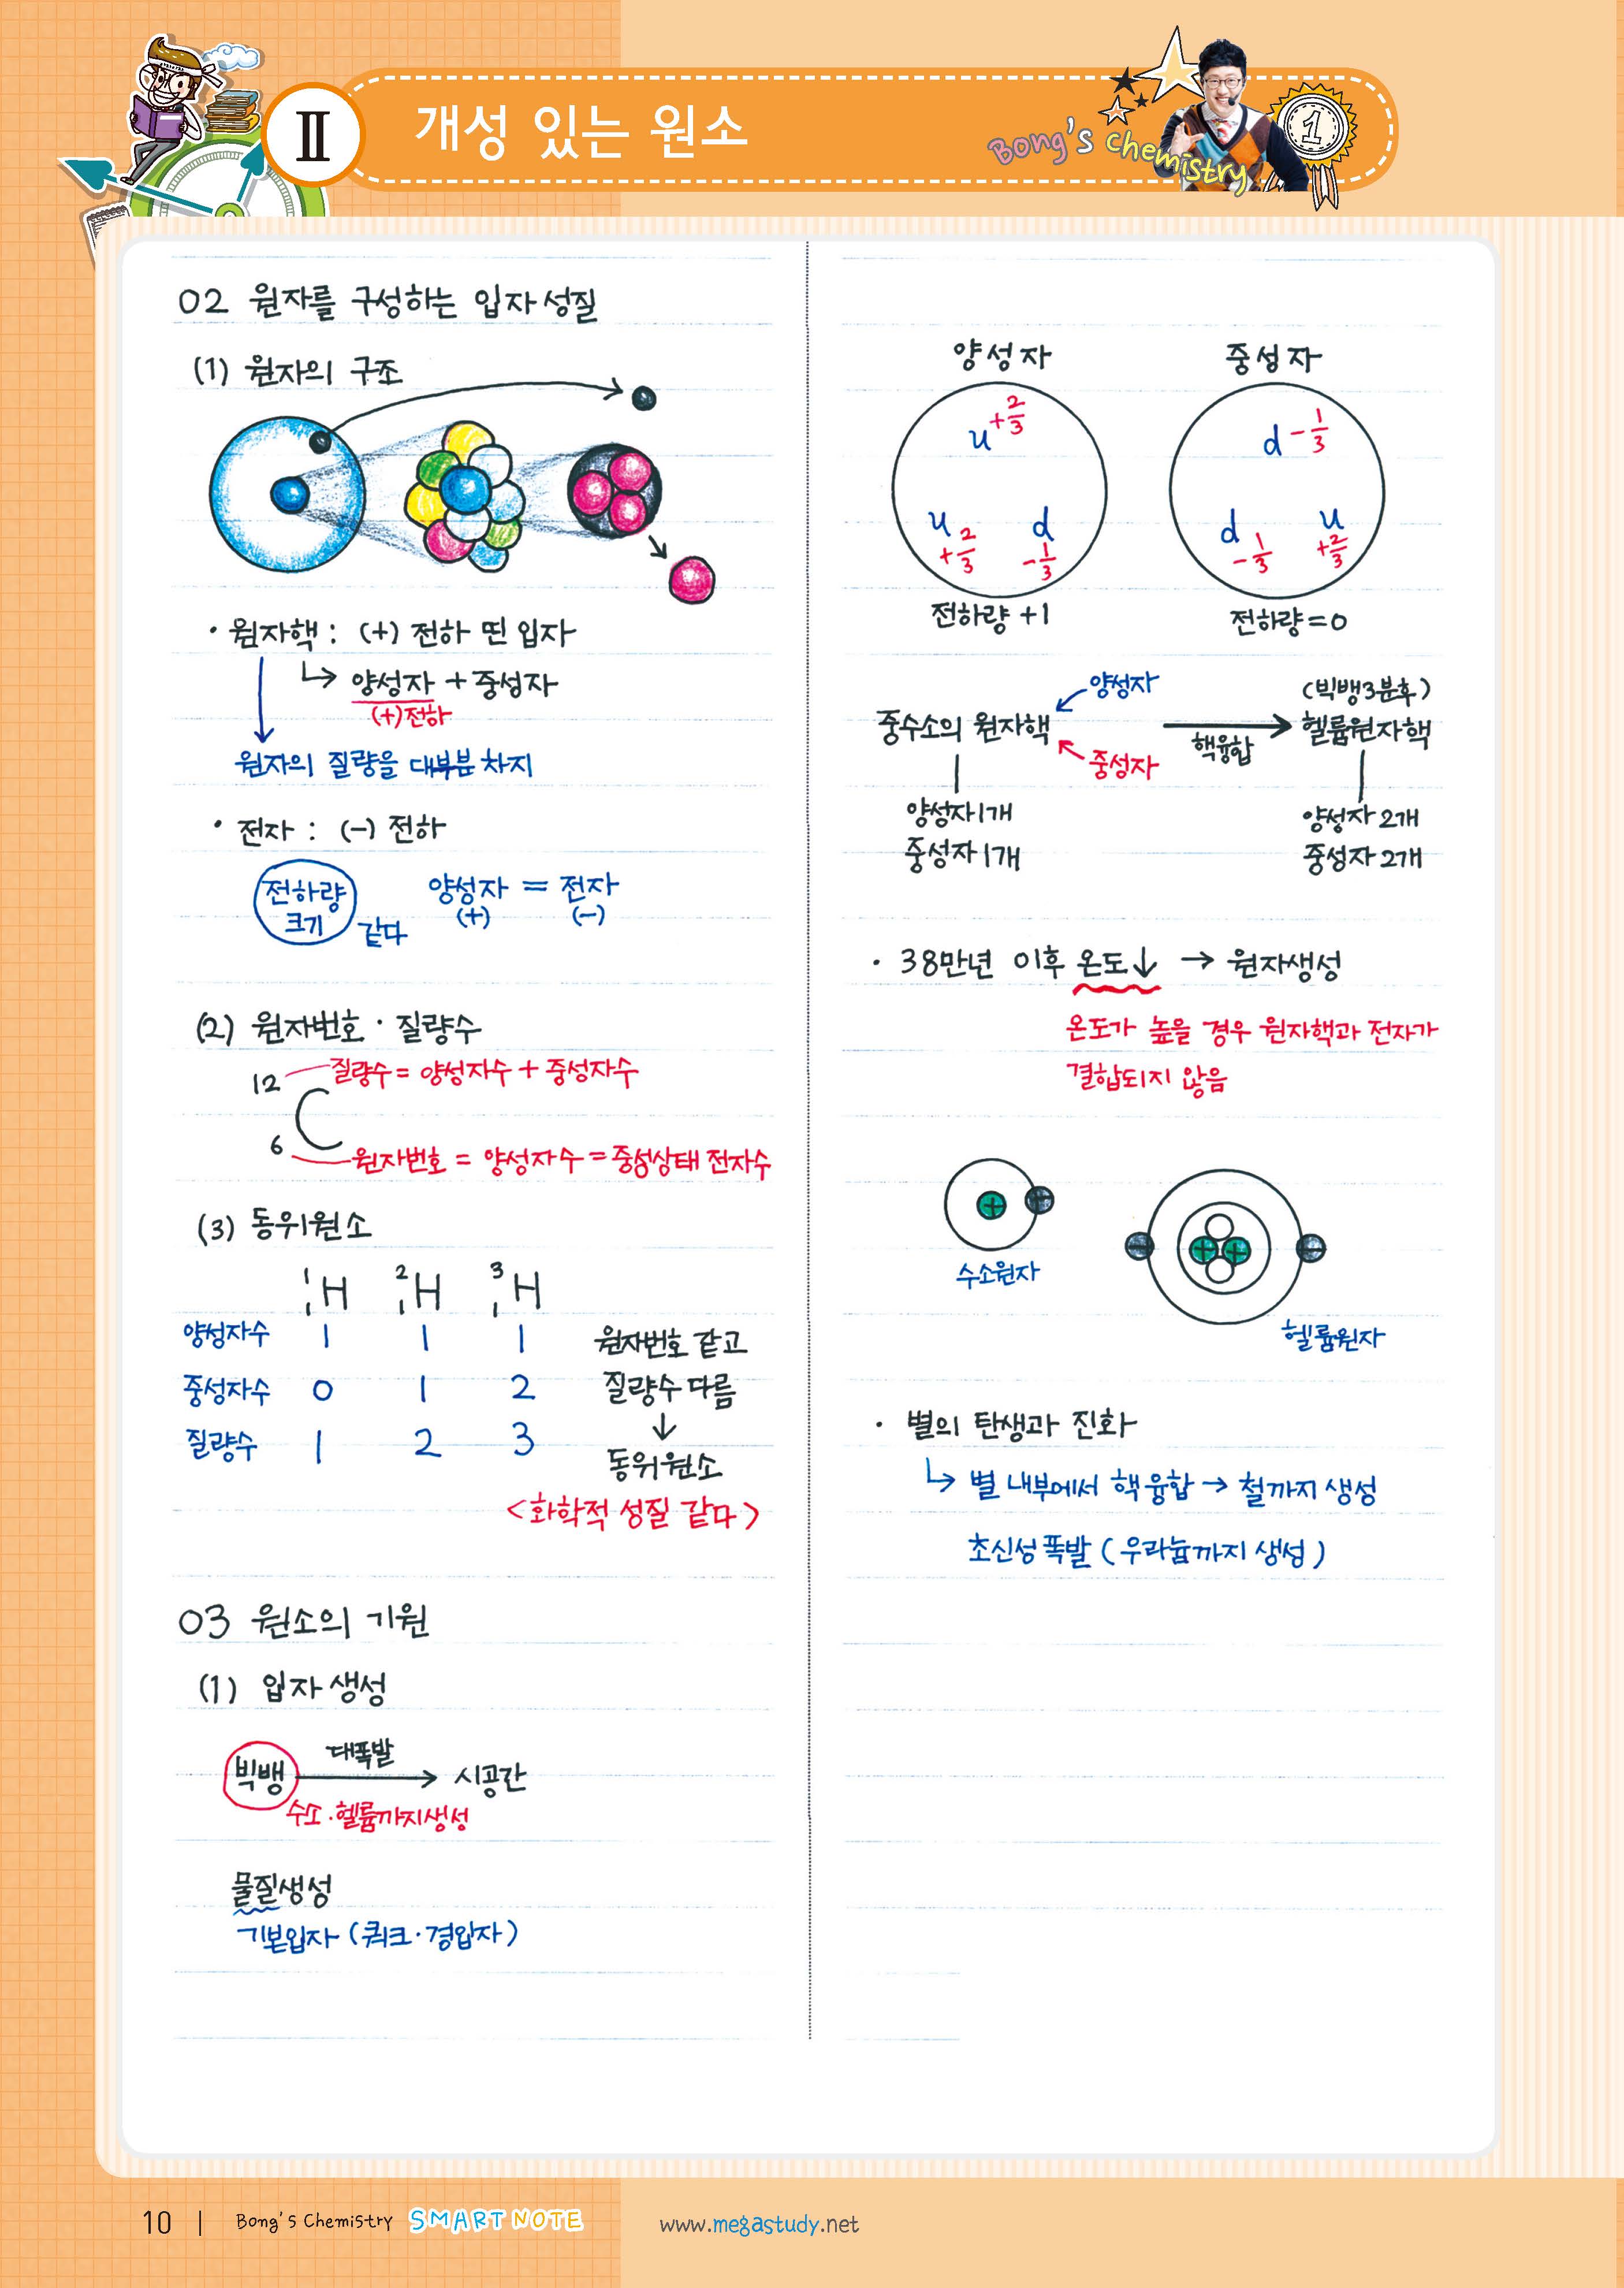 II
개성 있는 원소
Bong's chemistry
1
02 원자를 구성하는 입자 성질
(1) 원자의 구조
· 원자핵 : (+) 전하 띤 입자
양성자 + 중성자
(+)전하
원자의 질량을 대부분 차지
· 전자 : (-) 전하
전하량
크기
같다
양성자 = 전자
(+) (-)
(2) 원자번호 · 질량수
12 질량수 = 양성자수 + 중성자수
C
6 원자번호 = 양성자수 = 중성상태 전자수
(3) 동위원소
1 1 H 2 1 H 3 1 H
양성자수 1 1 1 원자번호 같고
중성자수 0 1 2 질량수 다름
↓
질량수 1 2 3
동위원소
<화학적 성질 같다>
03 원소의 기원
(1) 입자 생성
빅뱅 대폭발 → 시공간
수소·헬륨까지생성
물질생성
기본입자 (쿼크·경입자)
양성자 중성자
u +2/3
u +2/3 d -1/3
전하량 +1
d -1/3
d -1/3 u +2/3
전하량 = 0
양성자
(빅뱅3분후)
중수소의 원자핵 → 헬륨원자핵
핵융합
중성자
양성자 1개 양성자 2개
중성자 1개 중성자 2개
· 38만년 이후 온도↓ → 원자생성
온도가 높을 경우 원자핵과 전자가
결합되지 않음
+ -
수소원자
- + + -
헬륨원자
· 별의 탄생과 진화
별 내부에서 핵융합 → 철까지 생성
초신성 폭발 (우라늄까지 생성)
10 | Bong's Chemistry SMART NOTE www.megastudy.net